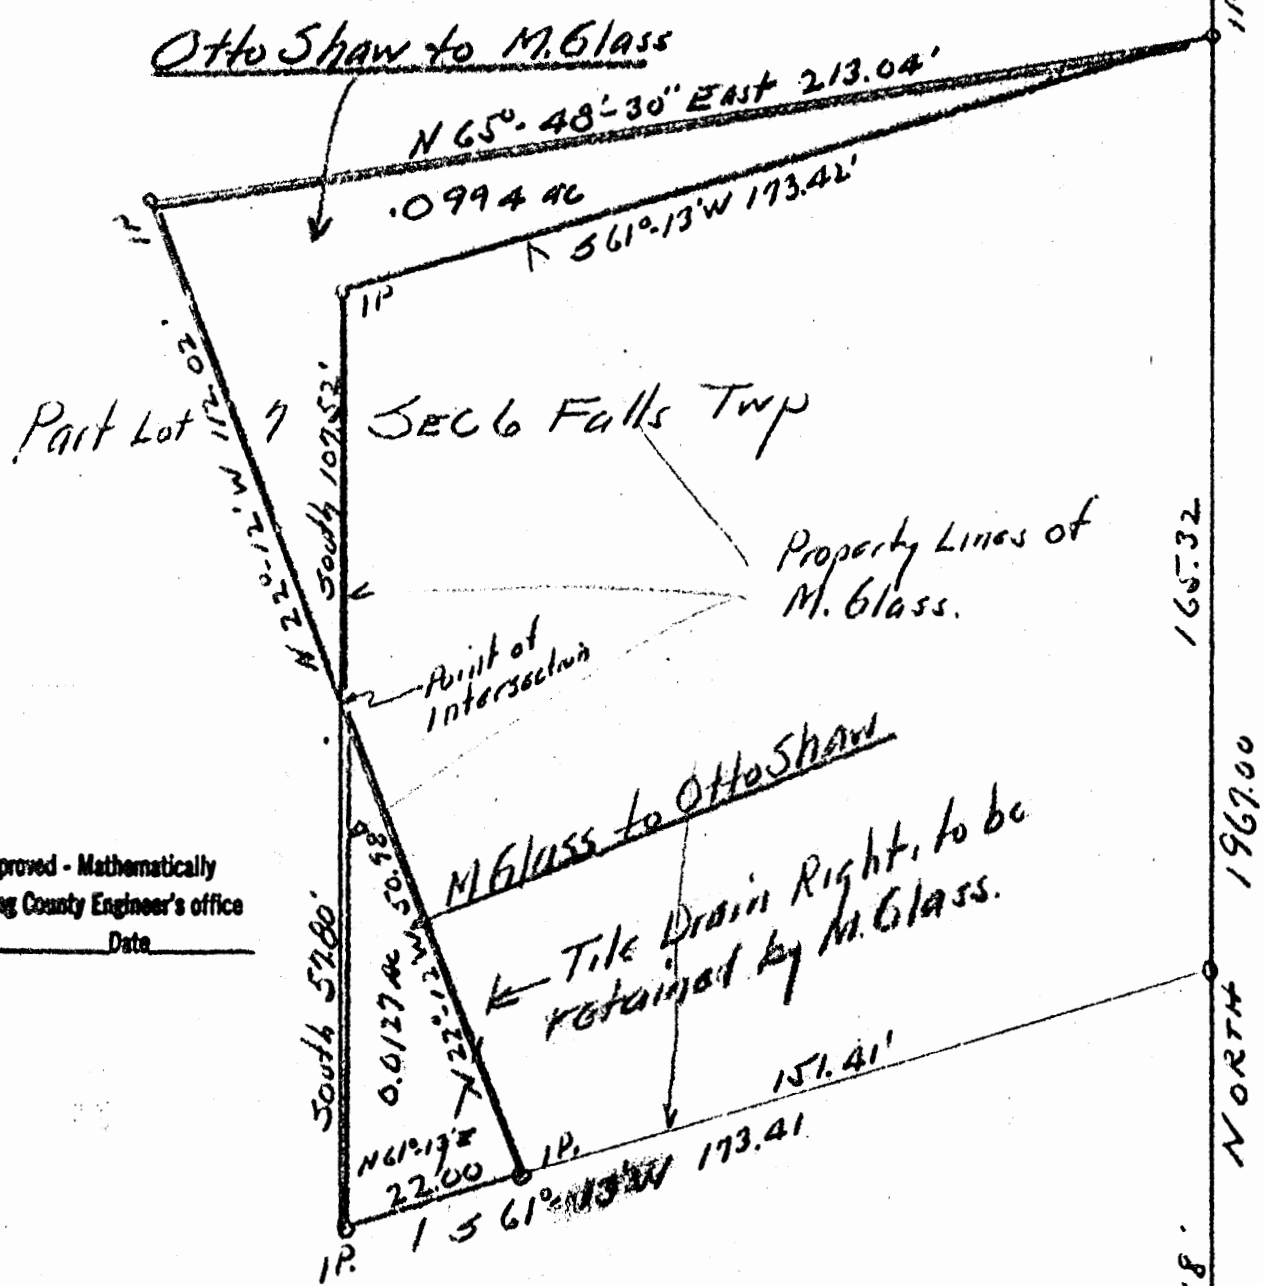 Otto Shaw to M. Glass
IP
N 65°-48'-30" East 213.04'
.0994 ac
S 61°-13'W 173.42'
IP
IP
N 22°-12'W 112.02'
South 107.52'
Part Lot 7 SEC 6 Falls Twp
Property Lines of
M. Glass.
165.32
Point of
Intersection
M Glass to Otto Shaw
Tile Drain Right, to be
retained by M. Glass.
proved - Mathematically
ng County Engineer's office
Date
South 57.80'
0.0127 ac
N 22°-12'W 50.98
1967.00
NORTH
151.41'
N 61°-13'E
22.00
IP.
S 61°-13'W 173.41
IP.
8'